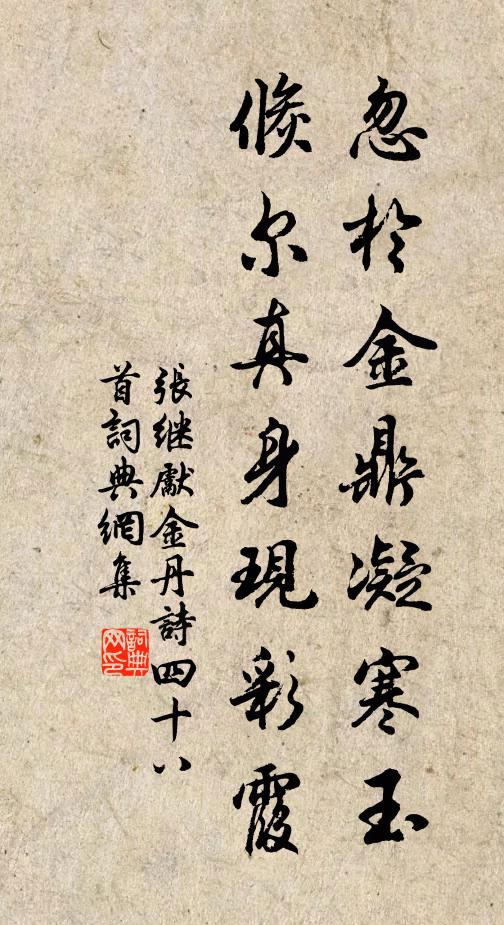 忽於金鼎凝寒玉
倐尔真身現彩霞
張继獻金丹詩四十八
首詞典網集
詞典
网印